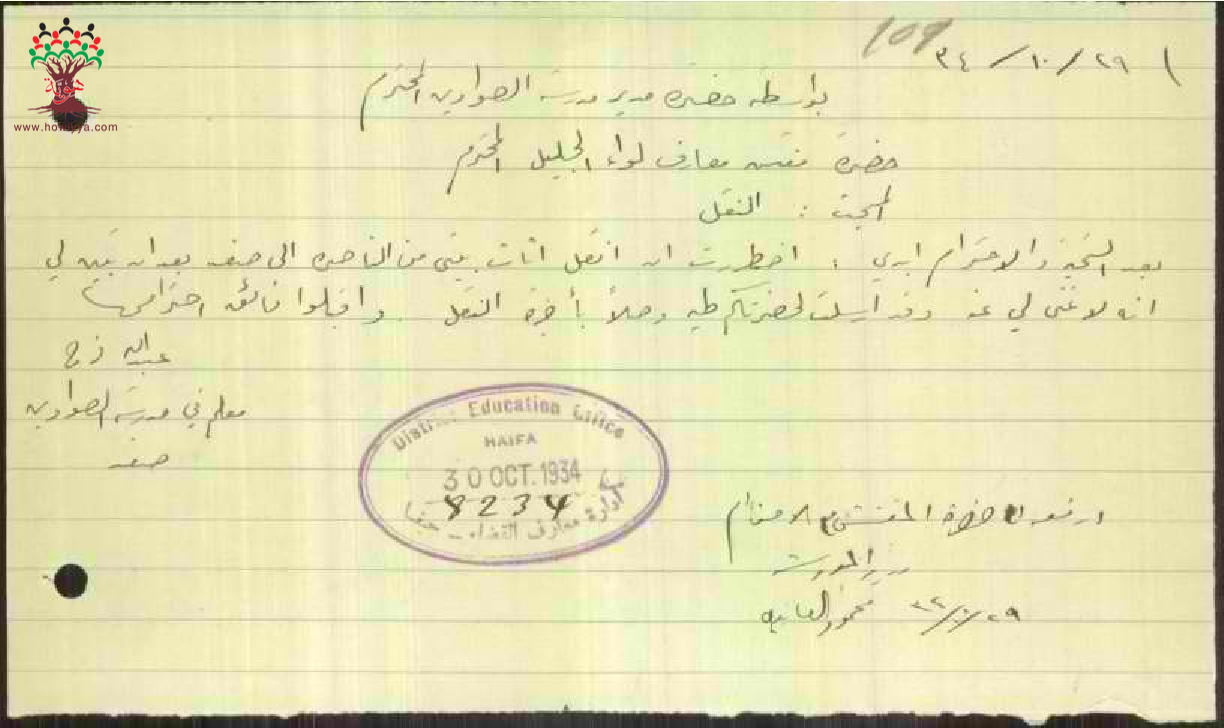 109
٢٩/١٠/٣٤
بواسطة حضرة مدير مدرسة الصواوين المحترم
حضرة مفتش معارف لواء الجليل المحترم
المبحث : النقل
بعد التحية والاحترام ابدي : اضطررت ان انقل اثاث بيتي من الناصره الى صفد بعد ان تبين لي
انه لا غنى لي عنه وقد ارسلت لحضرتكم طيه وصلاً بأجرة النقل . واقبلوا فائق احترامي
عبدالله فرح
معلم في مدرسة الصواوين
صفد
District Education Office
HAIFA
30 OCT. 1934
8234
ادارة معارف القضاء - حيفا
ارفعه لحضرة المفتش مع الاحترام
مدير المدرسة
محمود العابدي ٢٩/١٠/٣٤
هوية
www.howiyya.com